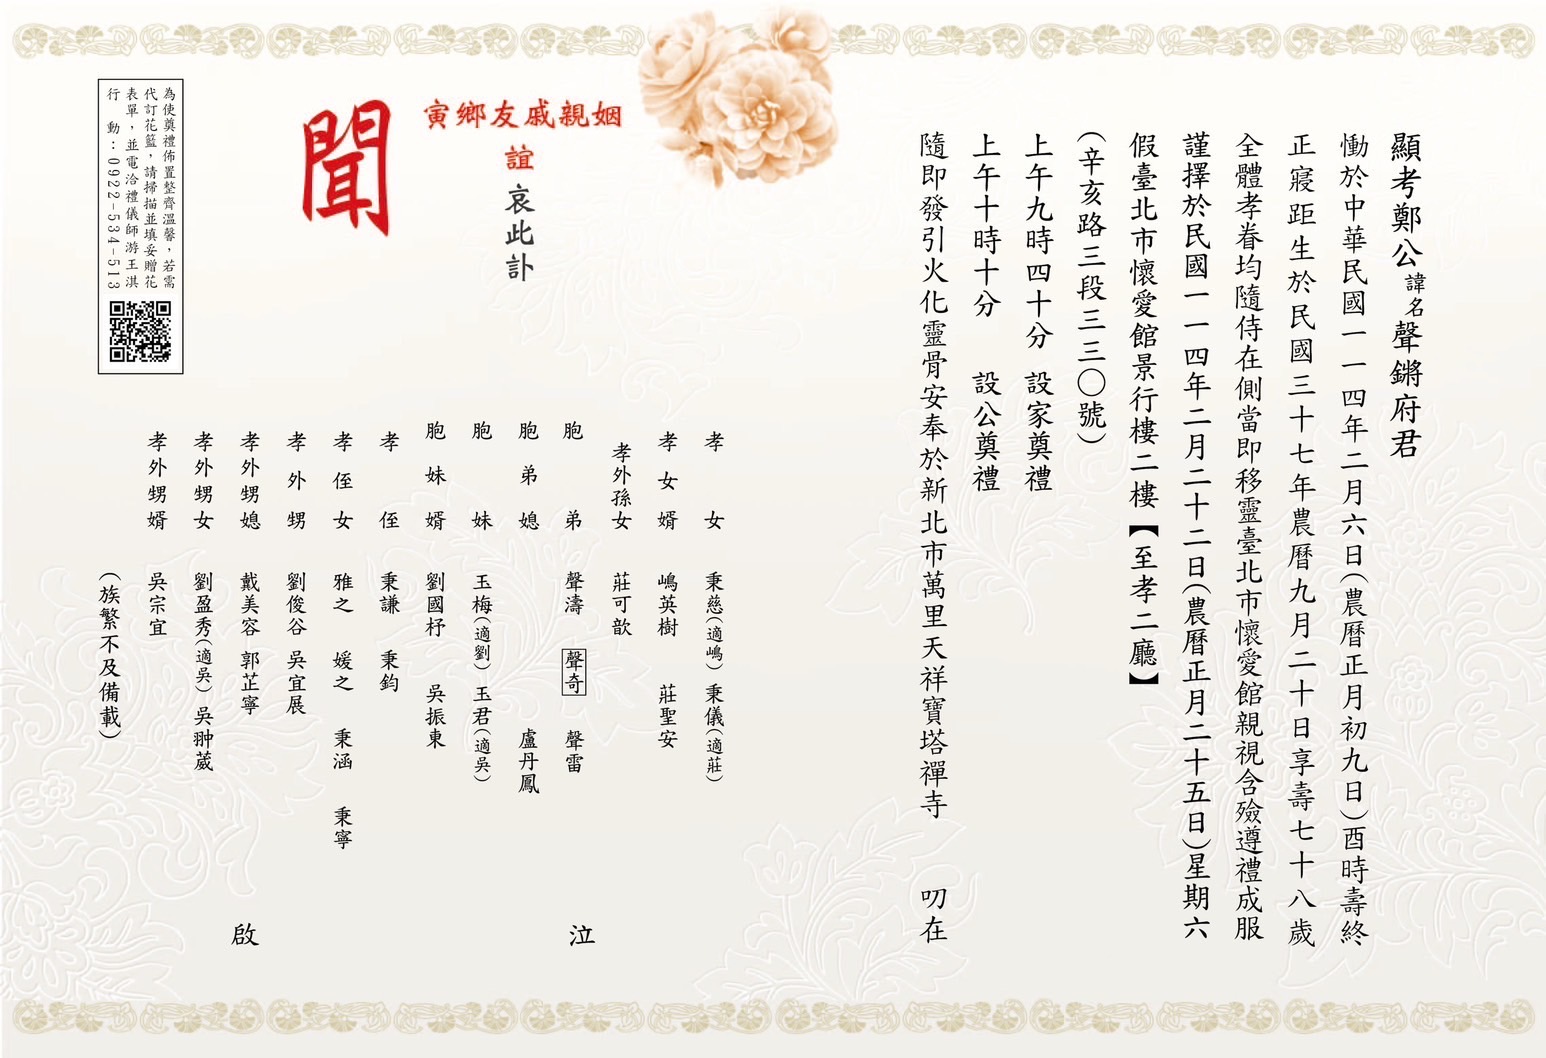 顯考鄭公諱名聲鏘府君
慟於中華民國一一四年二月六日(農曆正月初九日)酉時壽終
正寢距生於民國三十七年農曆九月二十日享壽七十八歲
全體孝眷均隨侍在側當即移靈臺北市懷愛館親視含殮遵禮成服
謹擇於民國一一四年二月二十二日(農曆正月二十五日)星期六
假臺北市懷愛館景行樓二樓【至孝二廳】
(辛亥路三段三三〇號)
上午九時四十分 設家奠禮
上午十時十分 設公奠禮
隨即發引火化靈骨安奉於新北市萬里天祥寶塔禪寺 叨在
姻親戚友鄉寅
誼哀此訃
聞
孝女 秉慈(適嶋) 秉儀(適莊)
孝女婿 嶋英樹 莊聖安
孝外孫女 莊可歆
胞弟 聲濤 聲奇 聲雷
胞弟媳 盧丹鳳
胞妹 玉梅(適劉) 玉君(適吳)
胞妹婿 劉國杼 吳振東
孝侄 秉謙 秉鈞
孝侄女 雅之 媛之 秉涵 秉寧
孝外甥 劉俊谷 吳宜展
孝外甥媳 戴美容 郭芷寧
孝外甥女 劉盈秀(適吳) 吳翀葳
孝外甥婿 吳宗宜
(族繁不及備載)
泣
啟
為使奠禮佈置整齊溫馨,若需
代訂花籃,請掃描並填妥贈花
表單,並電洽禮儀師游王淇
行動:0922-534-513